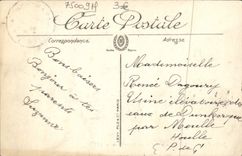 75009H 30€
Carte Postale
Correspondance Adresse
Bons baisers
Bonjour à tes
parents
Suzanne
Mademoiselle
René Dagoury
Usine élévatoire des
eaux de Dunkerque
par Moulle
Houlle
P. de C.